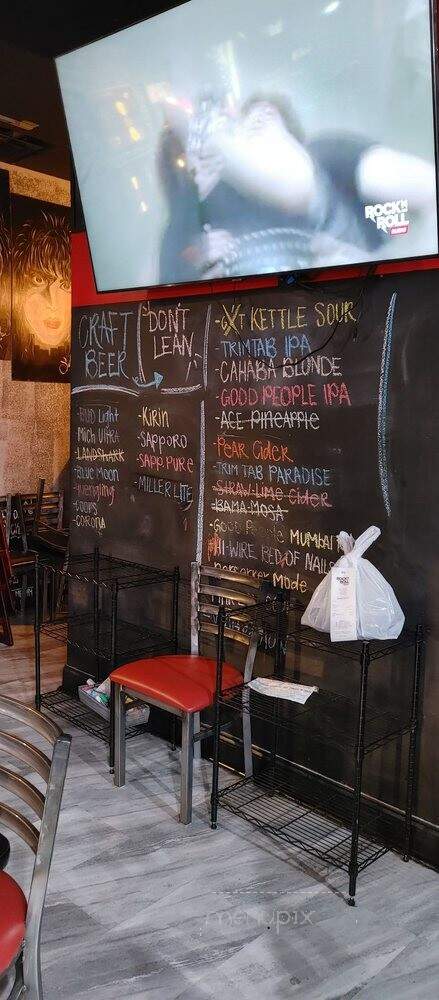 ROCK N
ROLL
CRAFT
BEER
"DON'T
LEAN"
BUD Light
Mich Ultra
LANDSHARK
Blue Moon
Yuengling
COORS
CORONA
-KIRIN
-SAPPORO
-SAPP. PURE
-MILLER LITE
KETTLE SOUR
-TRIMTAB IPA
-CAHABA BLONDE
-GOOD PEOPLE IPA
-ACE PINEAPPLE
-PEAR CIDER
-TRIM TAB PARADISE
-STRAW-LIME CIDER
-BAMA-MOSA
-GOOD People MUMBAI
HI-WIRE BED OF NAILS
MODE
menupix